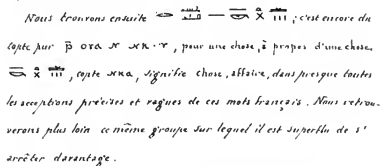 Nous trouvons ensuite ; c'est encore du
copte pur , pour une chose, à propos d'une chose.
, copte ⲛⲕⲁ, signifie chose, affaire, dans presque toutes
les acceptions précises et vagues de ces mots français. Nous retrou-
verons plus loin ce même groupe sur lequel il est superflu de s'
arrêter davantage.